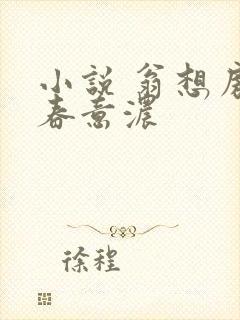 小説 翁想
春意濃
徐程